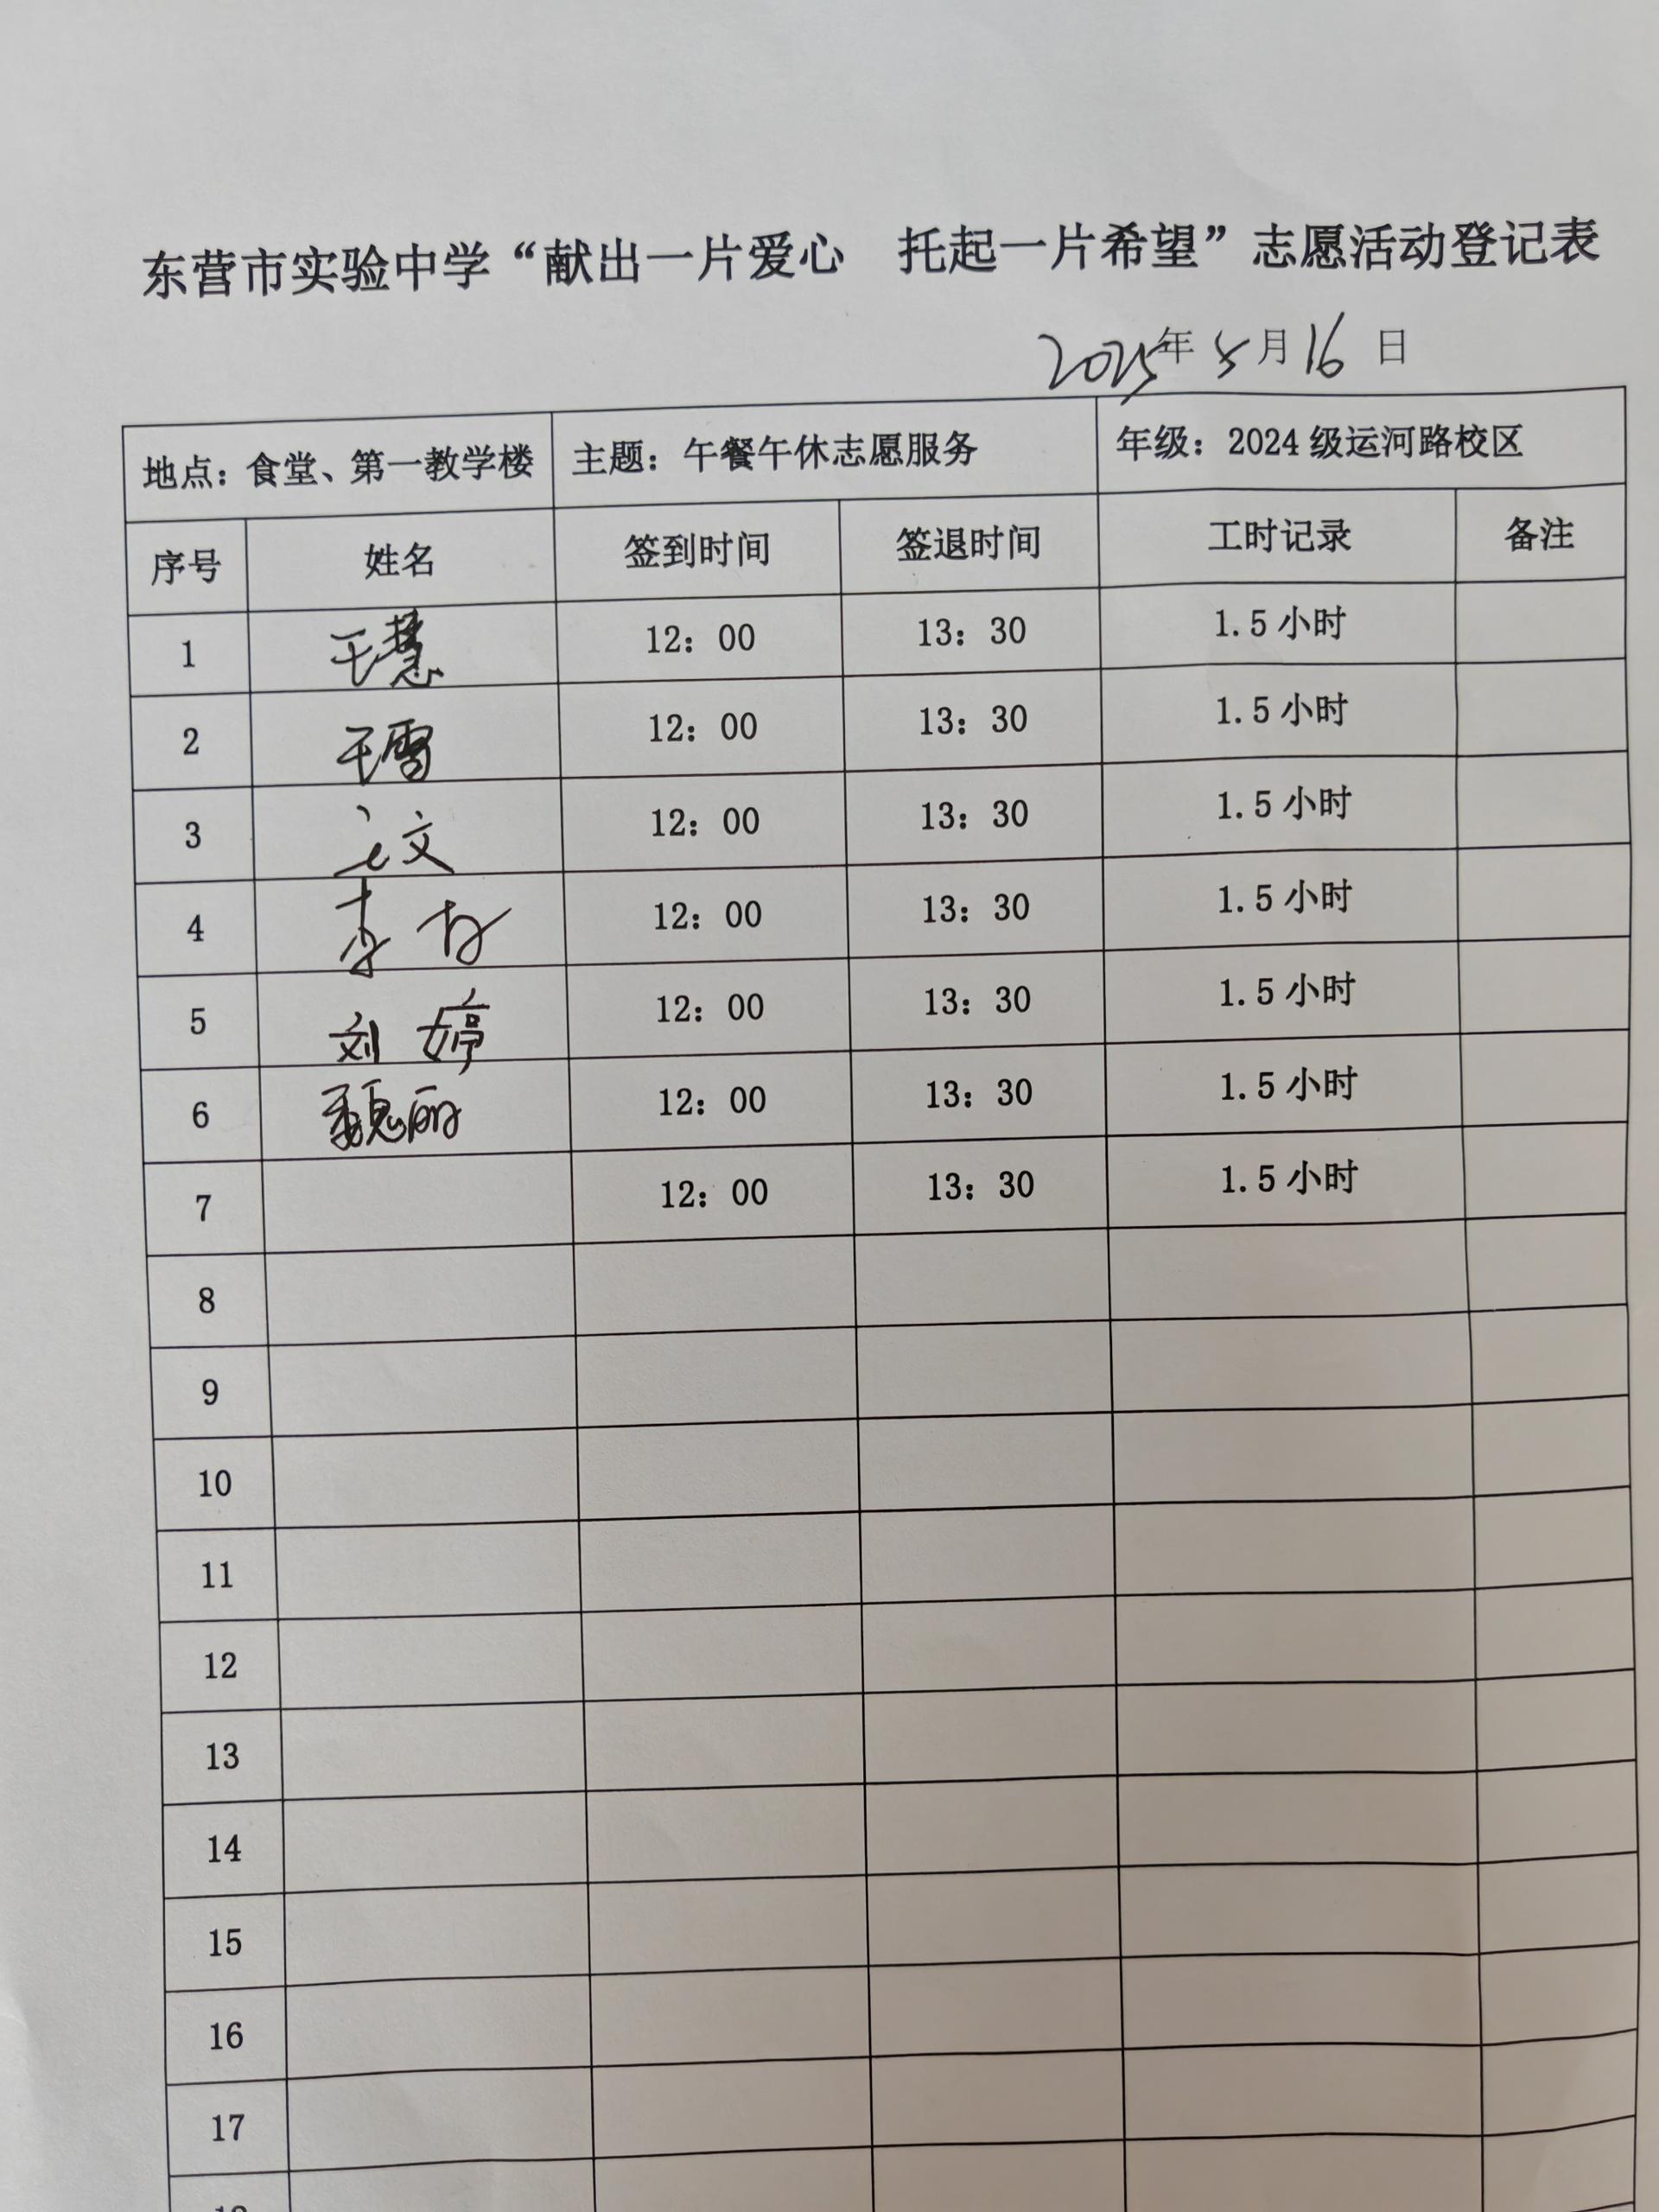 东营市实验中学“献出一片爱心 托起一片希望”志愿活动登记表
2025年5月16日
地点：食堂、第一教学楼 主题：午餐午休志愿服务 年级：2024级运河路校区
序号 姓名 签到时间 签退时间 工时记录 备注
1 王慧 12：00 13：30 1.5小时
2 12：00 13：30 1.5小时
3 文 12：00 13：30 1.5小时
4 李 12：00 13：30 1.5小时
5 刘婷 12：00 13：30 1.5小时
6 魏丽 12：00 13：30 1.5小时
7 12：00 13：30 1.5小时
8
9
10
11
12
13
14
15
16
17